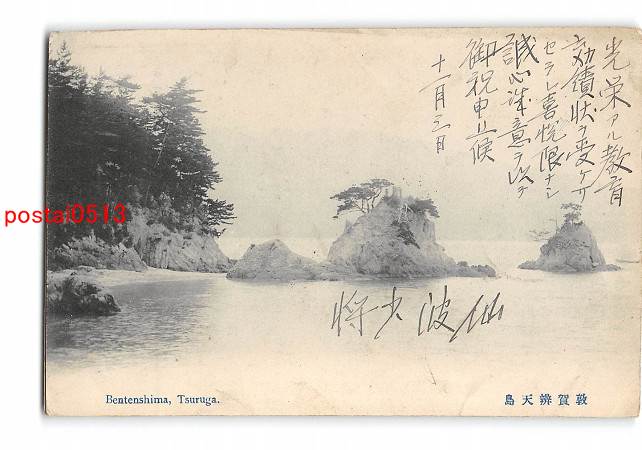 光栄アル教育
効績状ヲ受ケサ
セラレ喜悦限ナシ
誠心誠意ヲ以テ
御祝申上候
十一月三日
仙波少将
postal0513
Bentenshima, Tsuruga.
敦賀辨天島